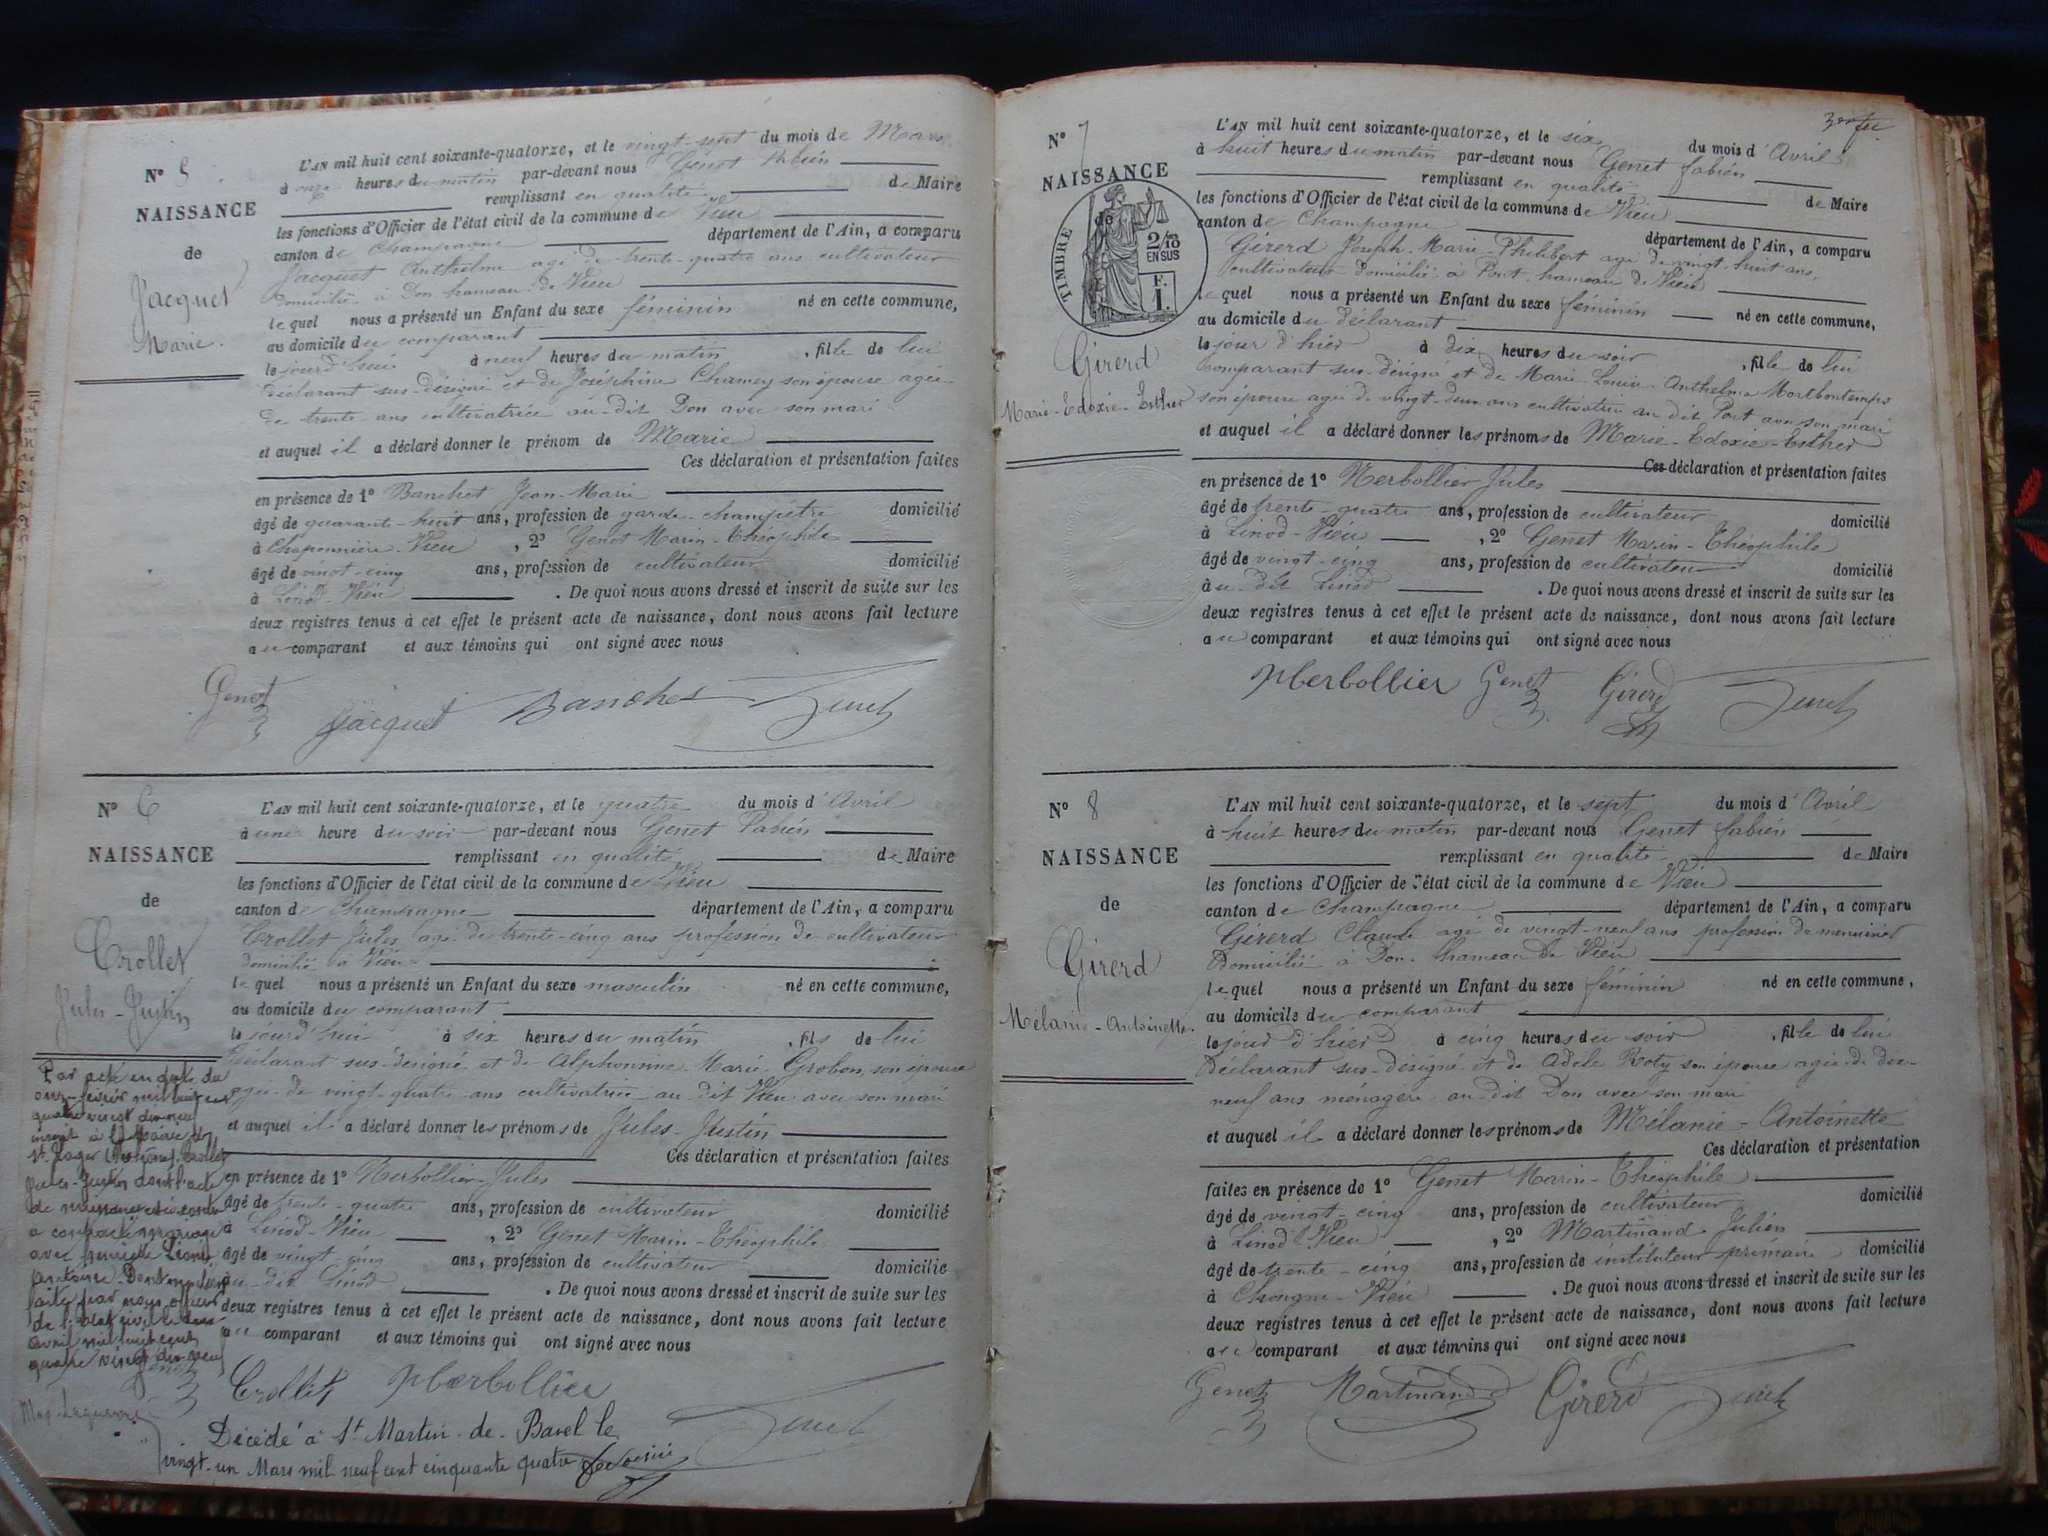 N° 5
NAISSANCE
de
Jacquet
Marie.
L'AN mil huit cent soixante-quatorze, et le vingt-sept du mois de Mars
à onze heures du matin par-devant nous Genet Fabien
remplissant en qualité de Maire
les fonctions d'Officier de l'état civil de la commune de Vieu
canton de Champagne département de l'Ain, a comparu
Jacquet Anthelme agé de trente-quatre ans cultivateur
domicilié à Don hameau de Vieu
lequel nous a présenté un Enfant du sexe féminin né en cette commune,
au domicile du comparant
le jourd'hui à neuf heures du matin, fille de lui
déclarant sus-désigné et de Joséphine Charney son épouse agée
de trente ans cultivatrice au-dit Don avec son mari
et auquel il a déclaré donner le prénom de Marie
Ces déclaration et présentation faites
en présence de 1° Banchet Jean-Marie
âgé de quarante-huit ans, profession de garde-champêtre domicilié
à Chaponnière-Vieu, 2° Genet Marin-Théophile
âgé de vingt-cinq ans, profession de cultivateur domicilié
à Linod-Vieu. De quoi nous avons dressé et inscrit de suite sur les
deux registres tenus à cet effet le présent acte de naissance, dont nous avons fait lecture
au comparant et aux témoins qui ont signé avec nous
Genet Jacquet Banchet Genet
N° 6
NAISSANCE
de
Crollet
Jules-Justin
L'AN mil huit cent soixante-quatorze, et le quatre du mois d'Avril
à une heure du soir par-devant nous Genet Fabien
remplissant en qualité de Maire
les fonctions d'Officier de l'état civil de la commune de Vieu
canton de Champagne département de l'Ain, a comparu
Crollet Jules, agé de trente-cinq ans profession de cultivateur
domicilié à Vieu
lequel nous a présenté un Enfant du sexe masculin né en cette commune,
au domicile du comparant
le jourd'hui à six heures du matin, fils de lui
déclarant sus-désigné et de Alphonsine Marie Grobon, son épouse
agée de vingt-quatre ans cultivatrice au-dit Vieu avec son mari
et auquel il a déclaré donner les prénoms de Jules-Justin
Ces déclaration et présentation faites
en présence de 1° Merbollier Jules
âgé de trente-quatre ans, profession de cultivateur domicilié
à Linod-Vieu, 2° Genet Marin-Théophile
âgé de vingt-cinq ans, profession de cultivateur domicilié
au-dit Linod. De quoi nous avons dressé et inscrit de suite sur les
deux registres tenus à cet effet le présent acte de naissance, dont nous avons fait lecture
au comparant et aux témoins qui ont signé avec nous
Par acte en date du
onze février mil huit cent
quatre vingt dix-neuf
inscrit à la Mairie de
Crollet
Jules-Justin dont l'acte
de naissance est ci-contre
a contracté mariage
avec
faite par nous officier
de l'état civil le
avril mil huit cent
quatre vingt dix-neuf
Genet Crollet Merbollier Genet
Décédé à St Martin-de-Bavel le
vingt-un Mars mil neuf cent cinquante quatre
3e
N° 7
NAISSANCE
de
TIMBRE
2/10
EN SUS
F.
1.
Girerd
Marie-Edoxie-Esther
L'AN mil huit cent soixante-quatorze, et le six du mois d'Avril
à huit heures du matin par-devant nous Genet fabien
remplissant en qualité de Maire
les fonctions d'Officier de l'état civil de la commune de Vieu
canton de Champagne département de l'Ain, a comparu
Girerd Joseph-Marie-Philibert agé de vingt-huit ans,
cultivateur domicilié à Pont, hameau de Vieu
lequel nous a présenté un Enfant du sexe féminin né en cette commune,
au domicile du déclarant
le jour d'hier à dix heures du soir, fille de lui
comparant sus-désigné et de Marie-Louise-Anthelme Montbontemps
son épouse agée de vingt-deux ans cultivatrice au dit Pont avec son mari
et auquel il a déclaré donner les prénoms de Marie-Edoxie-Esther
Ces déclaration et présentation faites
en présence de 1° Merbollier Jules
âgé de trente-quatre ans, profession de cultivateur domicilié
à Linod-Vieu, 2° Genet Marin-Théophile
âgé de vingt-cinq ans, profession de cultivateur domicilié
au-dit Linod. De quoi nous avons dressé et inscrit de suite sur les
deux registres tenus à cet effet le présent acte de naissance, dont nous avons fait lecture
au comparant et aux témoins qui ont signé avec nous
Merbollier Genet Girerd Genet
N° 8
NAISSANCE
de
Girerd
Mélanie-Antoinette.
L'AN mil huit cent soixante-quatorze, et le sept du mois d'Avril
à huit heures du matin par-devant nous Genet fabien
remplissant en qualité de Maire
les fonctions d'Officier de l'état civil de la commune de Vieu
canton de Champagne département de l'Ain, a comparu
Girerd Claude agé de vingt-neuf ans profession de menuisier
Domicilié à Don hameau de Vieu
lequel nous a présenté un Enfant du sexe féminin né en cette commune,
au domicile du comparant
le jour d'hier à cinq heures du soir, fille de lui
Déclarant sus-désigné et de Adèle Roty son épouse agée de dix-
neuf ans ménagère au-dit Don avec son mari
et auquel il a déclaré donner les prénoms de Mélanie-Antoinette
Ces déclaration et présentation
faites en présence de 1° Genet Marin-Théophile
âgé de vingt-cinq ans, profession de cultivateur domicilié
à Linod Vieu, 2° Martinand Julien
âgé de trente-cinq ans, profession de instituteur primaire domicilié
à Chongne-Vieu. De quoi nous avons dressé et inscrit de suite sur les
deux registres tenus à cet effet le présent acte de naissance, dont nous avons fait lecture
au comparant et aux témoins qui ont signé avec nous
Genet Martinand Girerd Genet